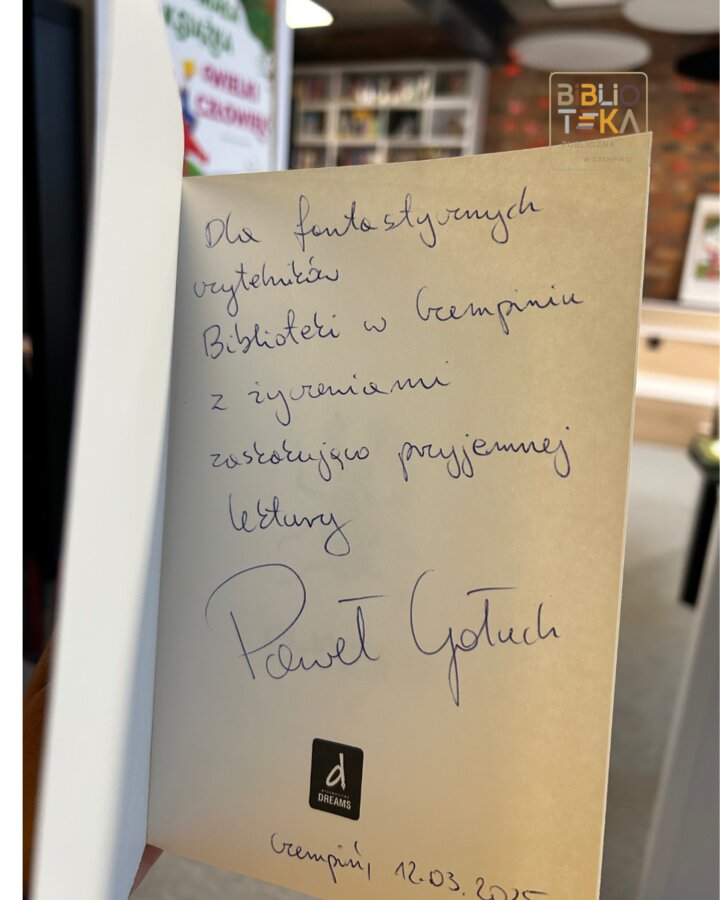 KSIĄŻKA
WIELKI
CZŁOWIEK
BIBLIO
TEKA
PUBLICZNA
W CZEMPINIU
Dla fantastycznych
czytelników
Biblioteki w Czempiniu
z życzeniami
zaskakująco przyjemnej
lektury
Paweł Gołuch
d
WYDAWNICTWO
DREAMS
Czempiń, 12.03.2025